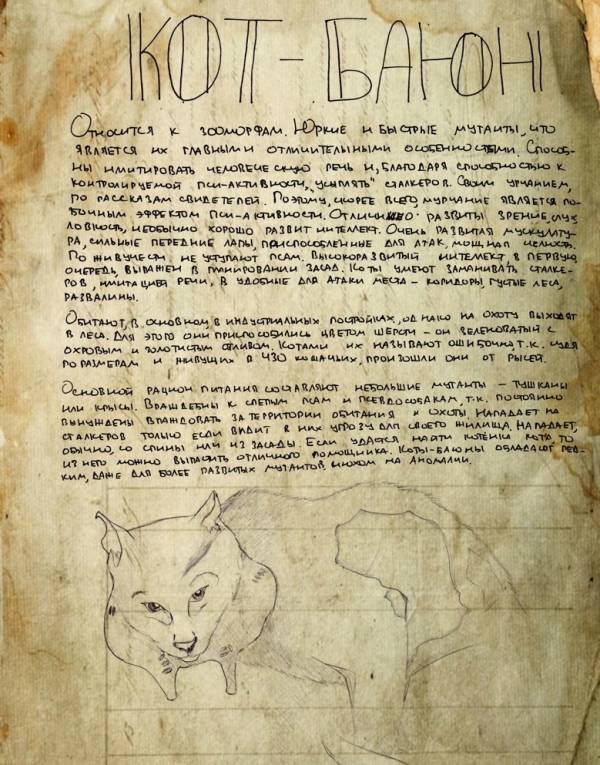 КОТ-БАЮН
Относится к зооморфам. Юркие и быстрые мутанты, что
является их главными отличительными особенностями. Способ-
ны имитировать человеческую речь и, благодаря способностью к
контролируемой пси-активности, "усыплять" сталкеров. Своим урчанием,
по рассказам свидетелей. Поэтому, скорее всего, мурчание является по-
бочным эффектом пси-активности. Отлично развиты зрение, слух
ловкость, необычно хорошо развит интеллект. Очень развитая мускулату-
ра, сильные передние лапы, приспособленные для атак, мощная челюсть.
По живучести не уступают псам. Высокоразвитый интеллект, в первую
очередь, выражен в планировании засад. Коты умеют заманивать сталке-
ров, имитацией речи, в удобные для атаки места - коридоры, густые леса,
развалины.
Обитают, в основном, в индустриальных постройках, однако на охоту выходят
в леса. Для этого они приспособились цветом шерсти - он зеленоватый с
охровым и золотистым отливом. Котами их называют ошибочно, т.к. судя
по размерам и живущих в ЧЗО кошачьих, произошли они от рысей.
Основной рацион питания составляют небольшие мутанты - тушканы
или крысы. Враждебны к слепым псам и псевдособакам, т.к. постоянно
вынуждены враждовать за территории обитания и охоты. Нападает на
сталкеров только если видит в них угрозу для своего жилища. Нападает,
обычно, со спины или из засады. Если удастся найти котёнка кота, то
из него можно вырастить отличного помощника. Коты-баюны обладают ред-
ким, даже для более развитых мутантов, нюхом на аномалии.